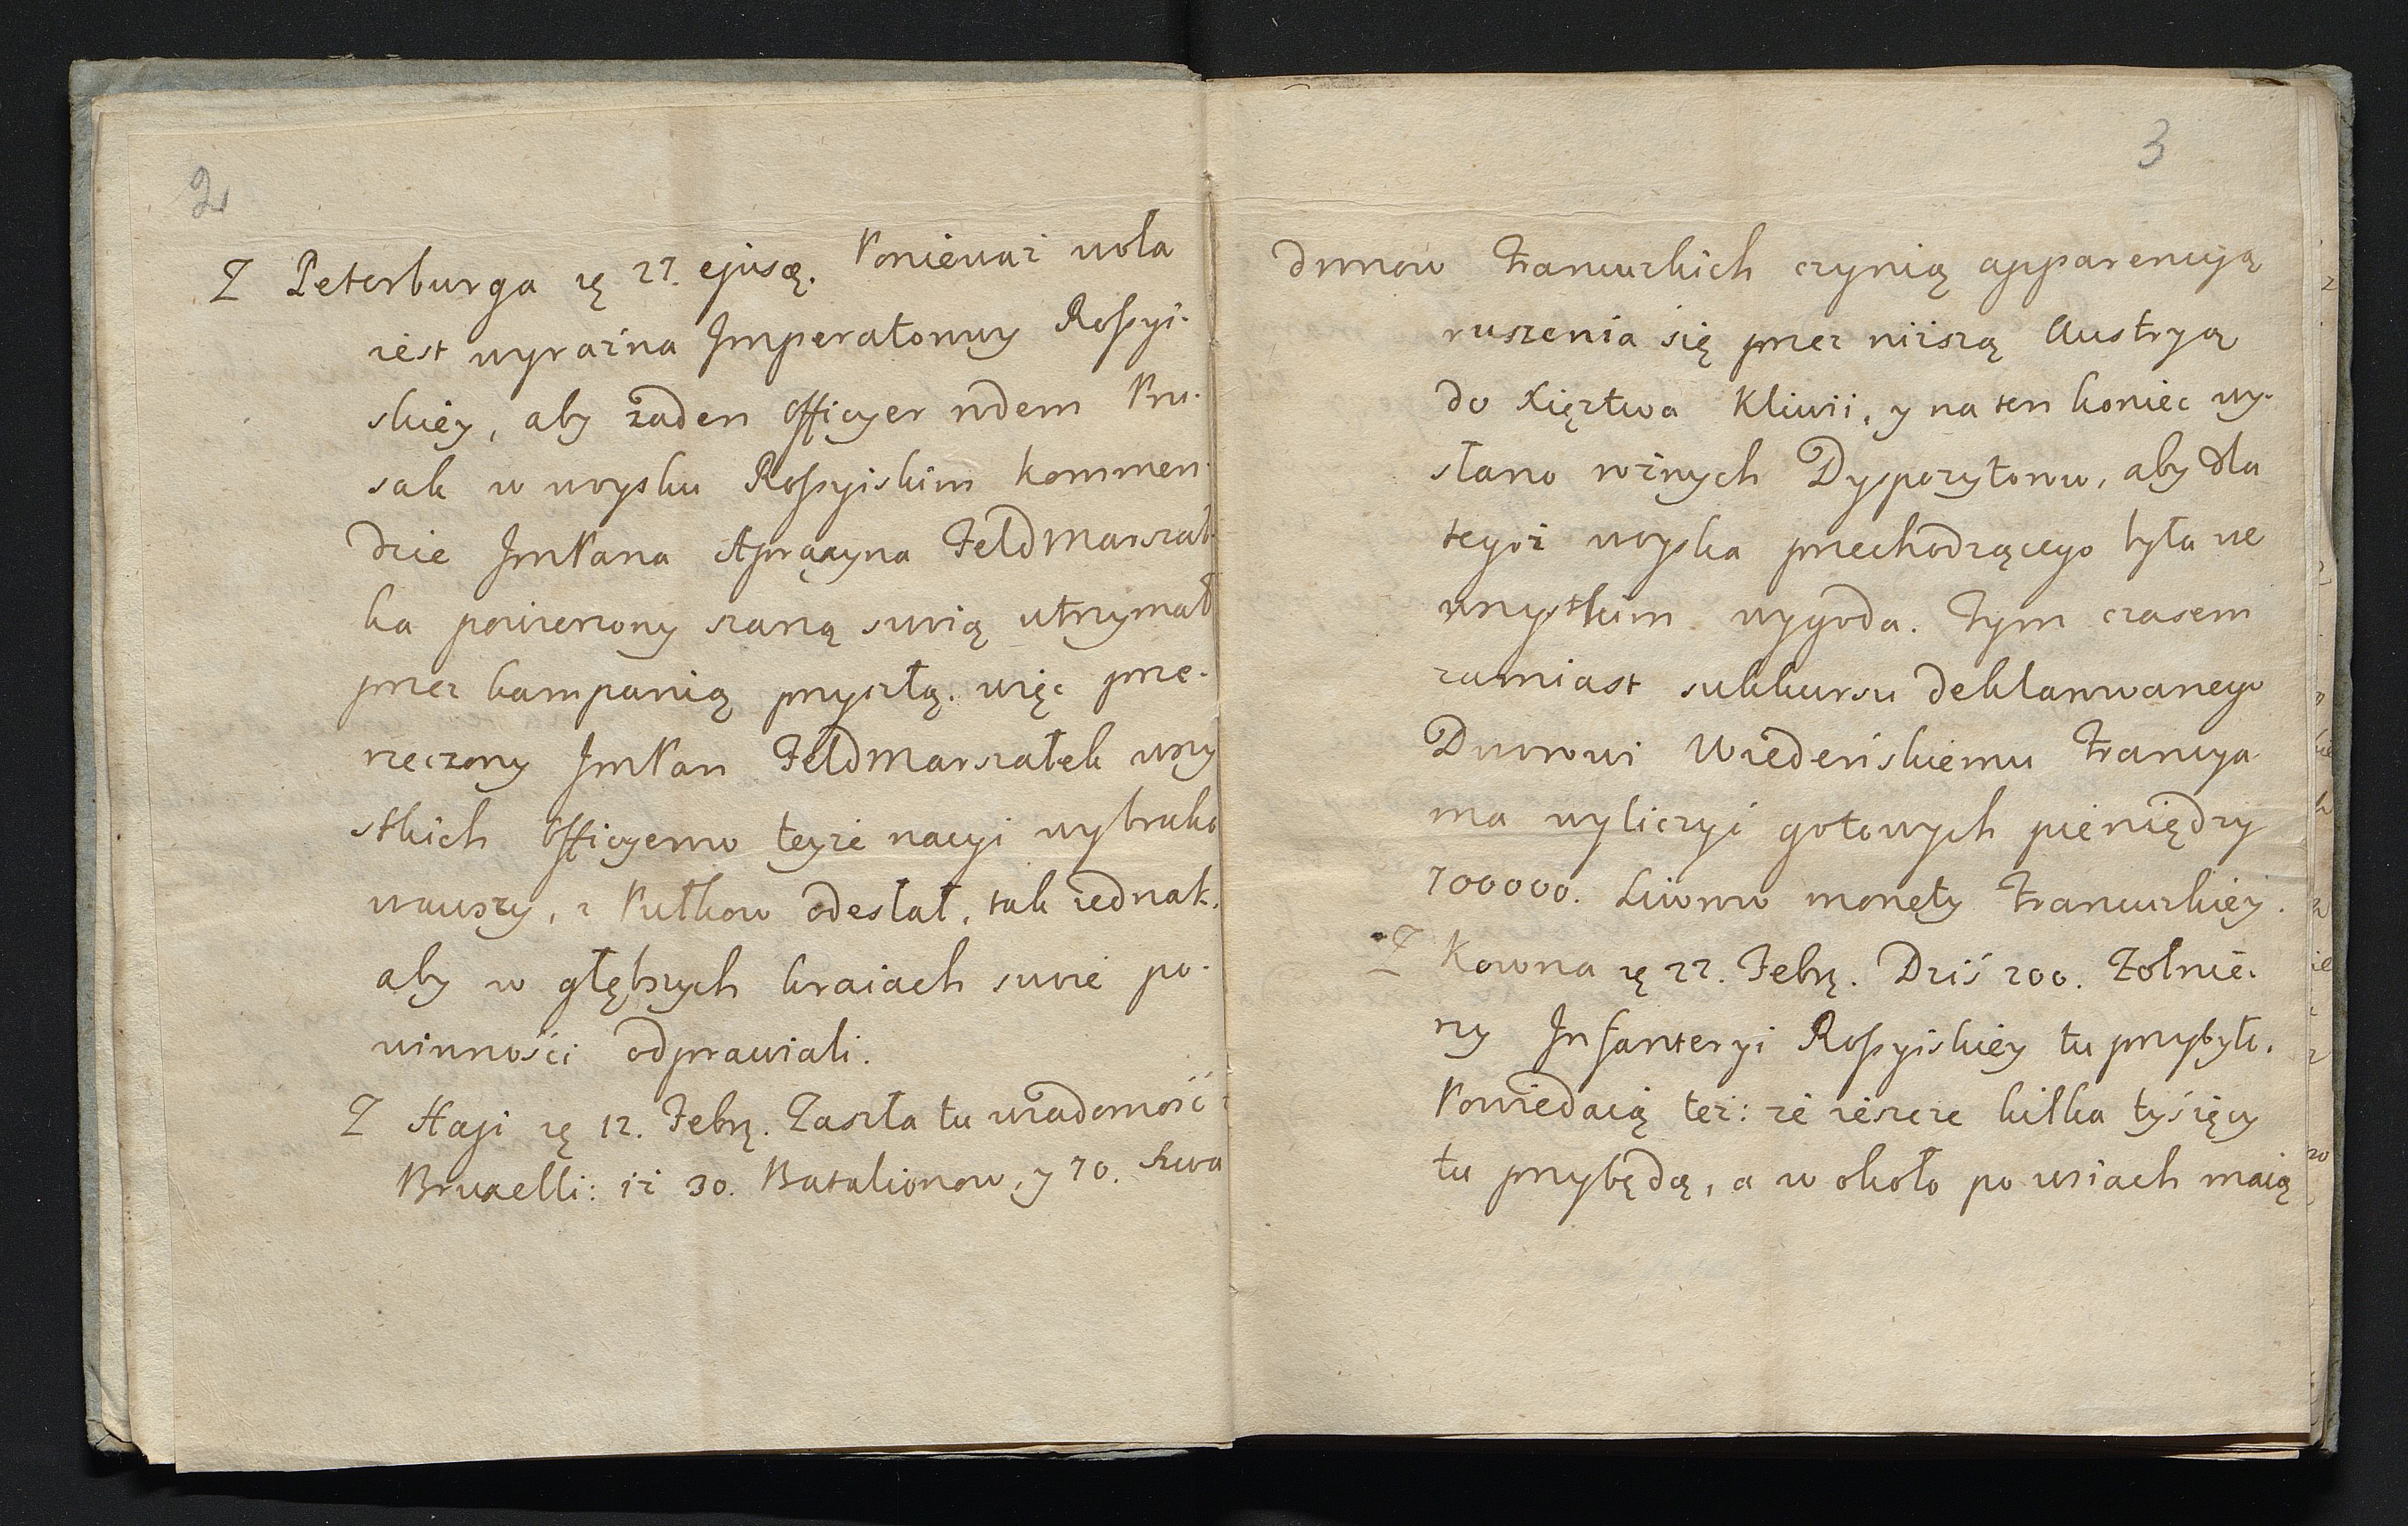 2
Z Peterburga zę 27. ejusę. Ponieważ wola
iest wyraźna Imperatorowy Rossyi-
skiey, aby żaden Officyer rodem Pru-
sak w woysku Rossyiskim kommen-
dzie JmPana Apraxyna Feldmarszał-
ka powierzony szarżą swoią utrzymał
przez kampanią przyszłą. więc prze-
rzeczony JmPan Feldmarszałek wszy
stkich Officyerow teyże nacyi wybrako
wawszy, z Pułkow odesłał, tak iednak,
aby w głębszych kraiach swoie po-
winności odprawiali.
Z Hagi zę 12. Febrę. Zaszła tu wiadomość z
Bruxelli: iż 30. Batalionow, y 70. Szwa
3
dronow Francuzkich czynią apparencyą
ruszenia się przez niższą Austryą
do Xięztwa Kliwii, y na ten koniec wy-
słano rożnych Dyspozytorow, aby dla
tegoż woyska przechodzącego była we
wszystkim wygoda. Tym czasem
zamiast sukkursu deklarowanego
Dworowi Wiedeńskiemu Francya
ma wyliczyć gotowych pieniędzy
700000. Liworow monety Francuzkiey.
Z Kowna zę 22. Febrę. Dziś 200. Żołnie-
rzy Infanteryi Rossyiskiey tu przybyło.
Powiedaią też: że ieszcze kilka tysięcy
tu przybędą, a w około po wsiach maią